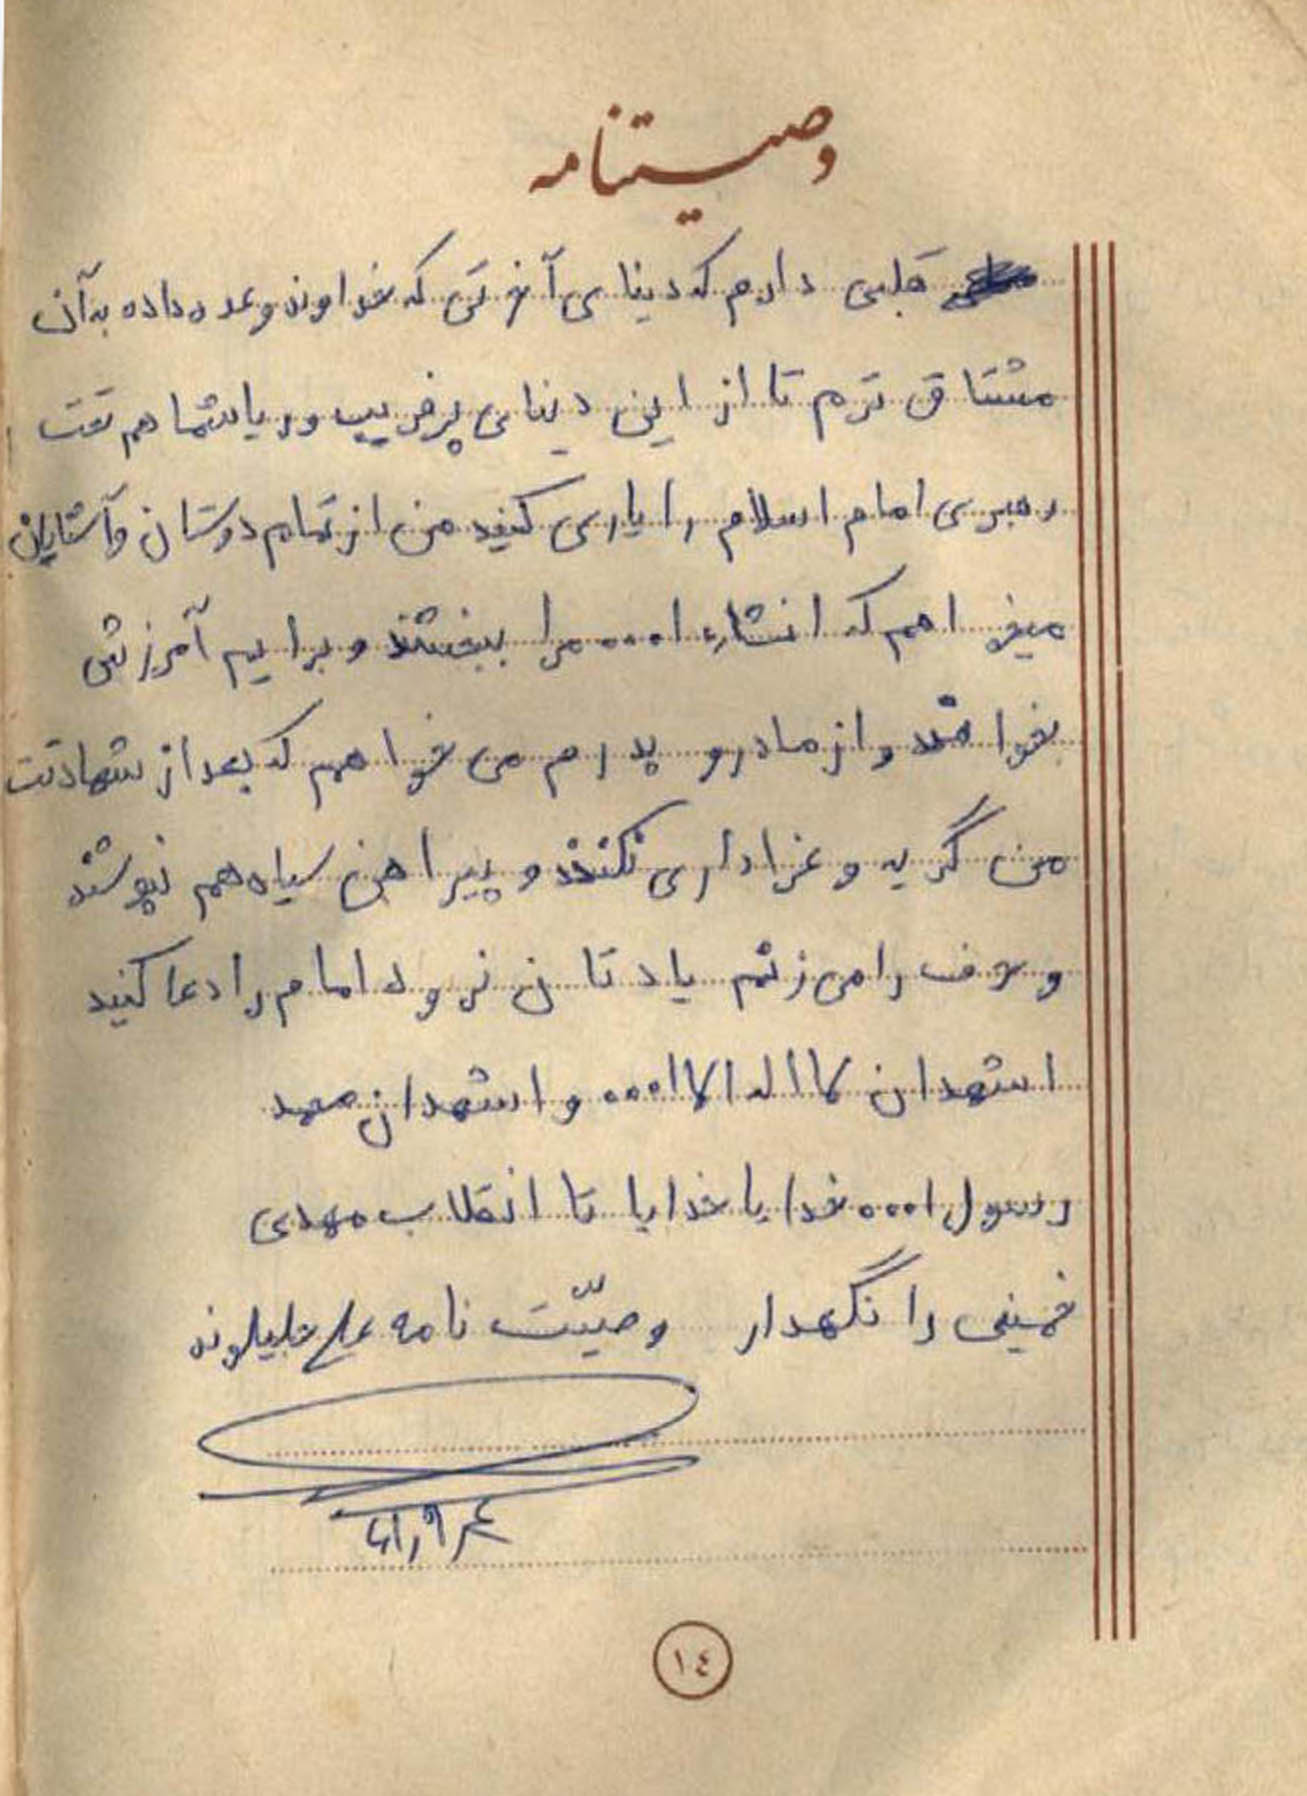 وصیتنامه
قلبی دارم که دینای آخرتی که خداوند وعده داده به آن
مشتاق ترم تا از این دینای پرفریب و ریا شما هم تحت
رهبری امام اسلام را یاری کنید من از تمام دوستان و آشنایان
میخواهم که انشاء ا... مرا ببخشند و برایم آمرزش
بخواهند و از مادر و پدرم می خواهم که بعد از شهادت
من گریه و عزاداری نکنند و پیراهن سیاه هم نپوشند
و حرف را می زنم یادتان نرود امام را دعا کنید
اشهدان لا اله الا ا... و اشهدان محمد
رسول ا... خدایا خدایا تا انقلاب مهدی
خمینی را نگهدار وصیّت نامه علی جلیلوند
۶۱/۹/۴
١٤